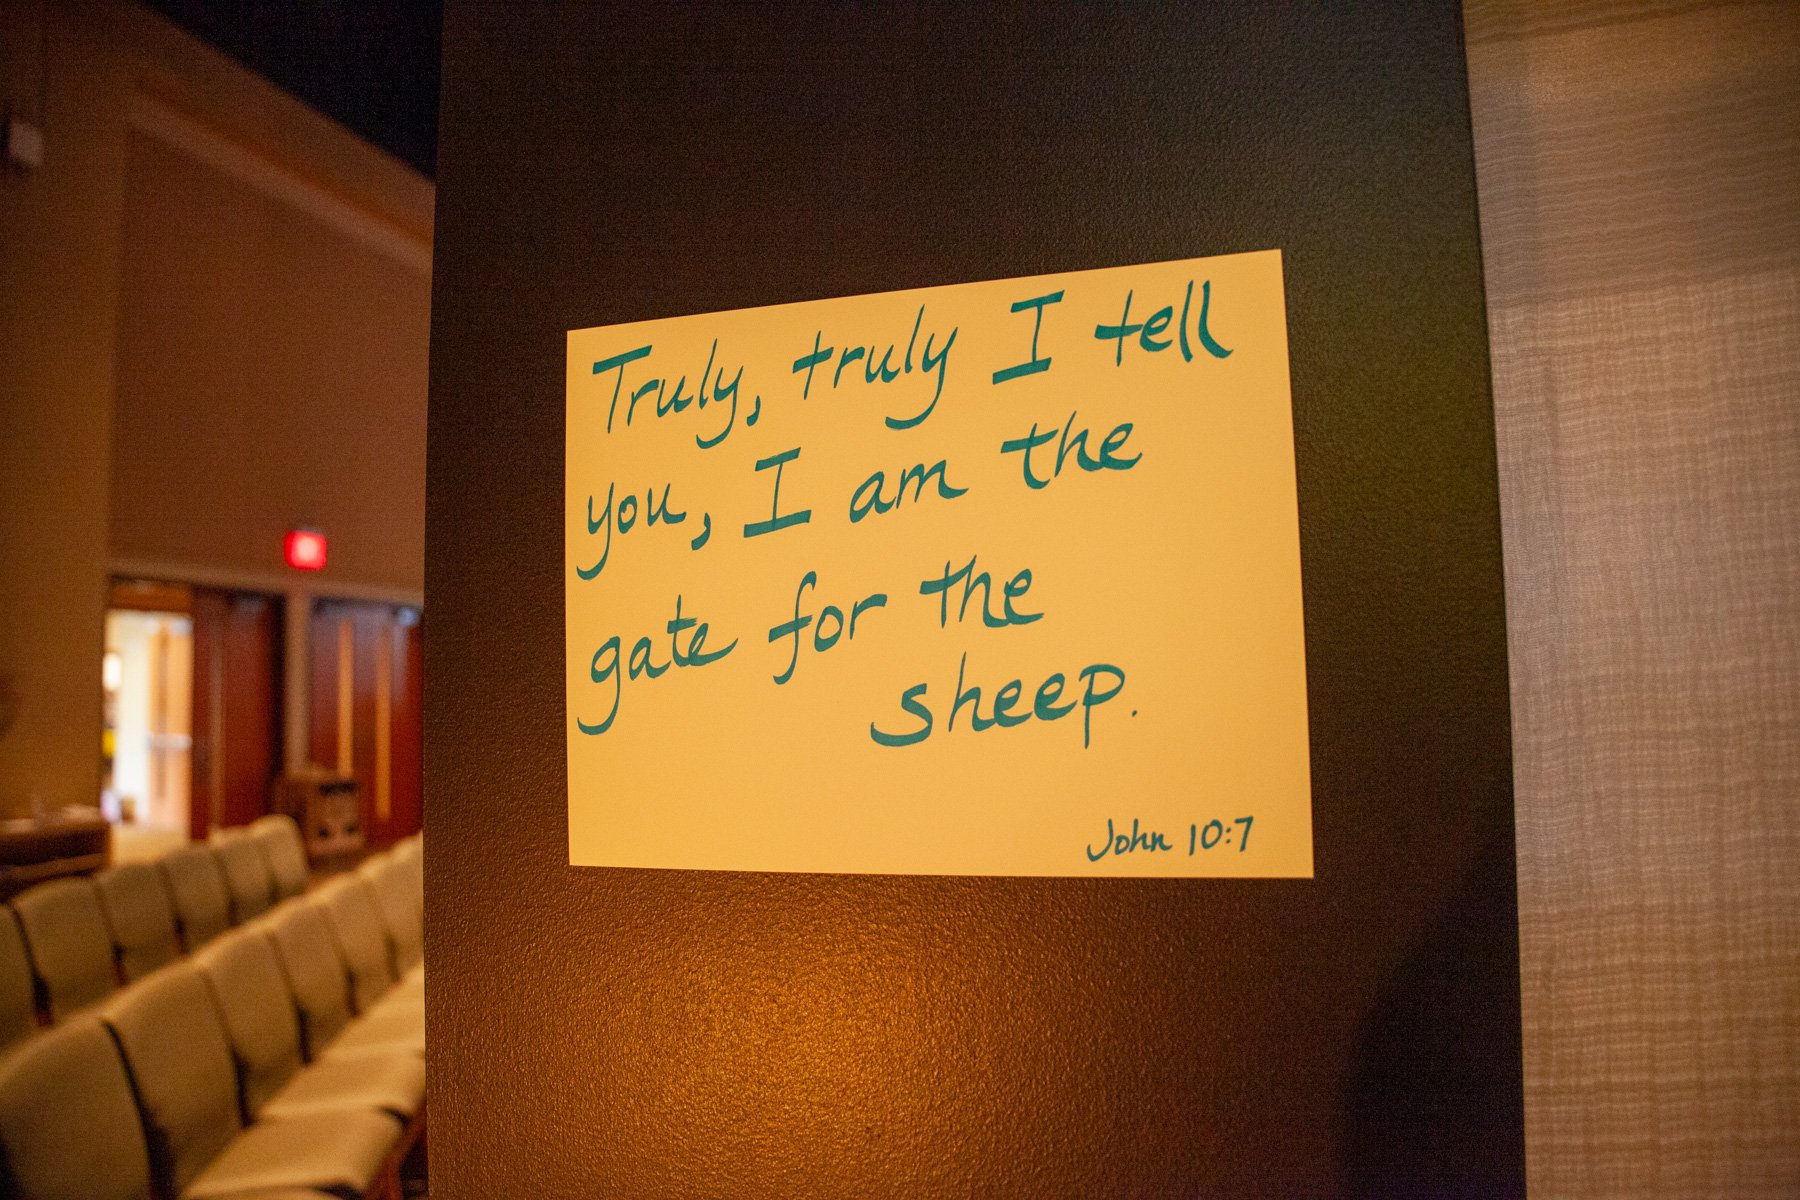 Truly, truly I tell
you, I am the
gate for the
sheep.
John 10:7